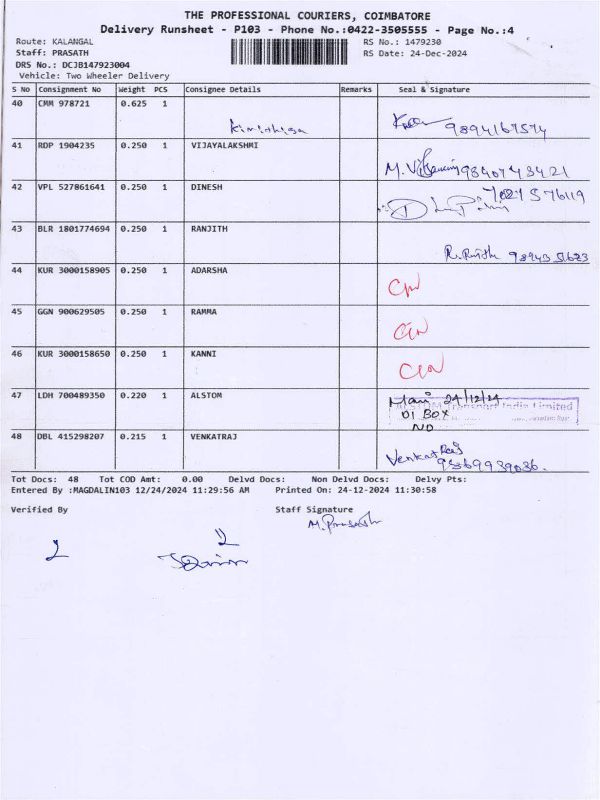 THE PROFESSIONAL COURIERS, COIMBATORE
Delivery Runsheet - P103 - Phone No.:0422-3505555 - Page No.:4
Route: KALANGAL RS No.: 1479230
Staff: PRASATH RS Date: 24-Dec-2024
DRS No.: DCJB147923004
Vehicle: Two Wheeler Delivery
S No Consignment No Weight PCS Consignee Details Remarks Seal & Signature
40 CMM 978721 0.625 1
9894167574
41 RDP 1904235 0.250 1 VIJAYALAKSHMI
42 VPL 527861641 0.250 1 DINESH
43 BLR 1801774694 0.250 1 RANJITH
44 KUR 3000158905 0.250 1 ADARSHA
45 GGN 900629505 0.250 1 RAMMA
46 KUR 3000158650 0.250 1 KANNI
47 LDH 700489350 0.220 1 ALSTOM 24/12/24
Transport India Limited
BOX
NO
48 DBL 415298207 0.215 1 VENKATRAJ Venkat Raj
Tot Docs: 48 Tot COD Amt: 0.00 Delvd Docs: Non Delvd Docs: Delvy Pts:
Entered By :MAGDALIN103 12/24/2024 11:29:56 AM Printed On: 24-12-2024 11:30:58
Verified By Staff Signature
M. Prasath